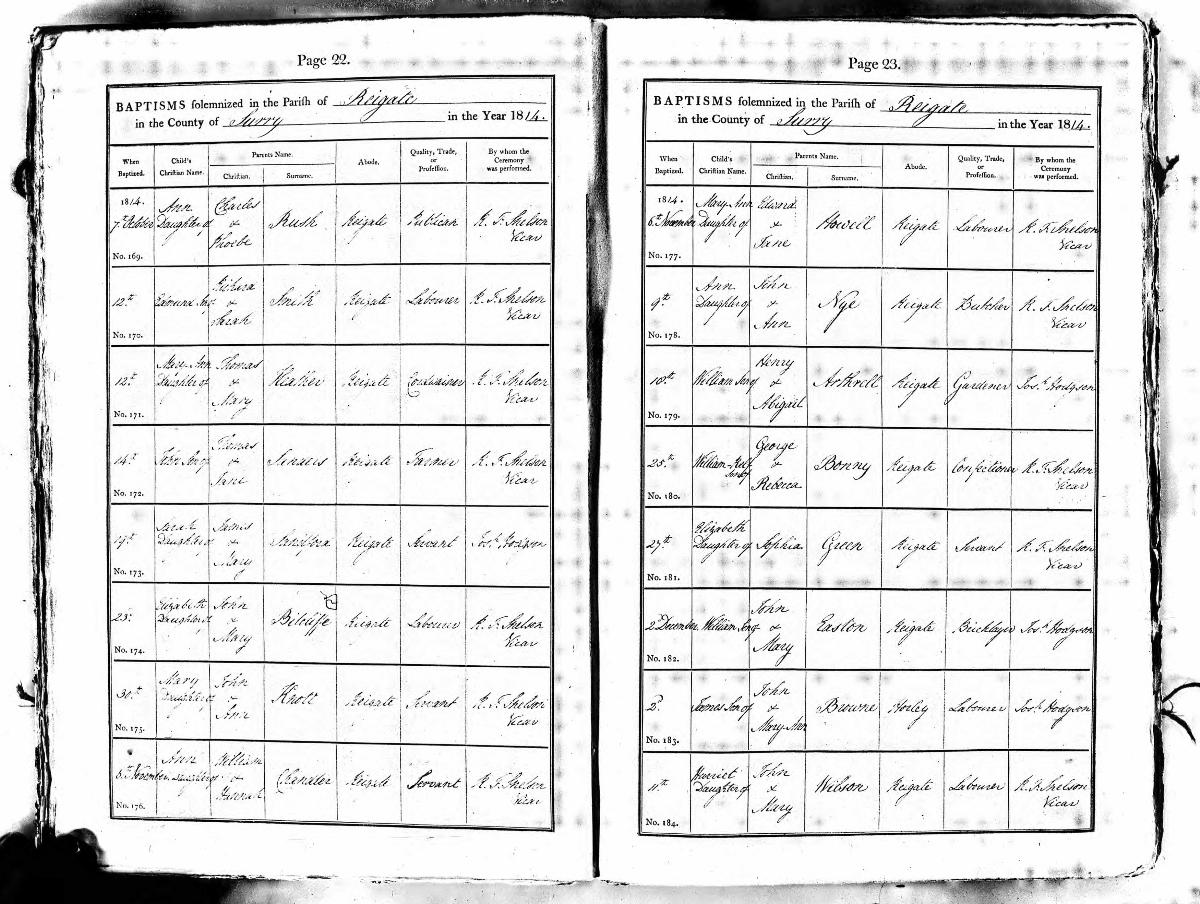 Page 22.
BAPTISMS solemnized in the Parish of Reigate
in the County of Surry in the Year 1814.
When Baptized. Child's Christian Name. Parents Name. Christian. Surname. Abode. Quality, Trade, or Profession. By whom the Ceremony was performed.
1814.
7th October Ann Daughter of Charles & Phoebe Rush Reigate Publican Vicar
No. 169.
12th Edmund Son of & Sarah Smith Reigate Labourer Vicar
No. 170.
12th Mary Ann Daughter of Thomas & Mary Heather Reigate Cordwainer Vicar
No. 171.
14th John Son of Thomas & Jane Reigate Farmer Vicar
No. 172.
19th Sarah Daughter of James & Mary Reigate Servant Josh Hodgson
No. 173.
23d Elizabeth Daughter of John & Mary Reigate Labourer Vicar
No. 174.
30th Mary Daughter of John & Ann Knott Reigate Servant Vicar
No. 175.
6th November Ann Daughter of William & Hannah Chandler Reigate Servant Vicar
No. 176.
Page 23.
BAPTISMS solemnized in the Parish of Reigate
in the County of Surry in the Year 1814.
When Baptized. Child's Christian Name. Parents Name. Christian. Surname. Abode. Quality, Trade, or Profession. By whom the Ceremony was performed.
1814.
6th November Mary Ann Daughter of Edward & Jane Howell Reigate Labourer Vicar
No. 177.
9th Ann Daughter of John & Ann Nye Reigate Butcher Vicar
No. 178.
10th William Son of Henry & Abigail Arthrell Reigate Gardener Josh Hodgson
No. 179.
25th William Son of George & Rebecca Bonny Reigate Confectioner Vicar
No. 180.
27th Elizabeth Daughter of Sophia Green Reigate Servant Vicar
No. 181.
2d December William Son of John & Mary Easton Reigate Bricklayer Josh Hodgson
No. 182.
2d James Son of John & Mary Ann Browne Horley Labourer Josh Hodgson
No. 183.
11th Harriet Daughter of John & Mary Wilson Reigate Labourer Vicar
No. 184.